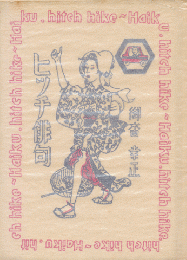 ku . hitch hike~Haik
u. hitch hike~Haiku.hitch hike
hitch hike~Haiku.hit
ch hike~Haiku.hitch hike~Hai
ヒッチ俳句
幸正